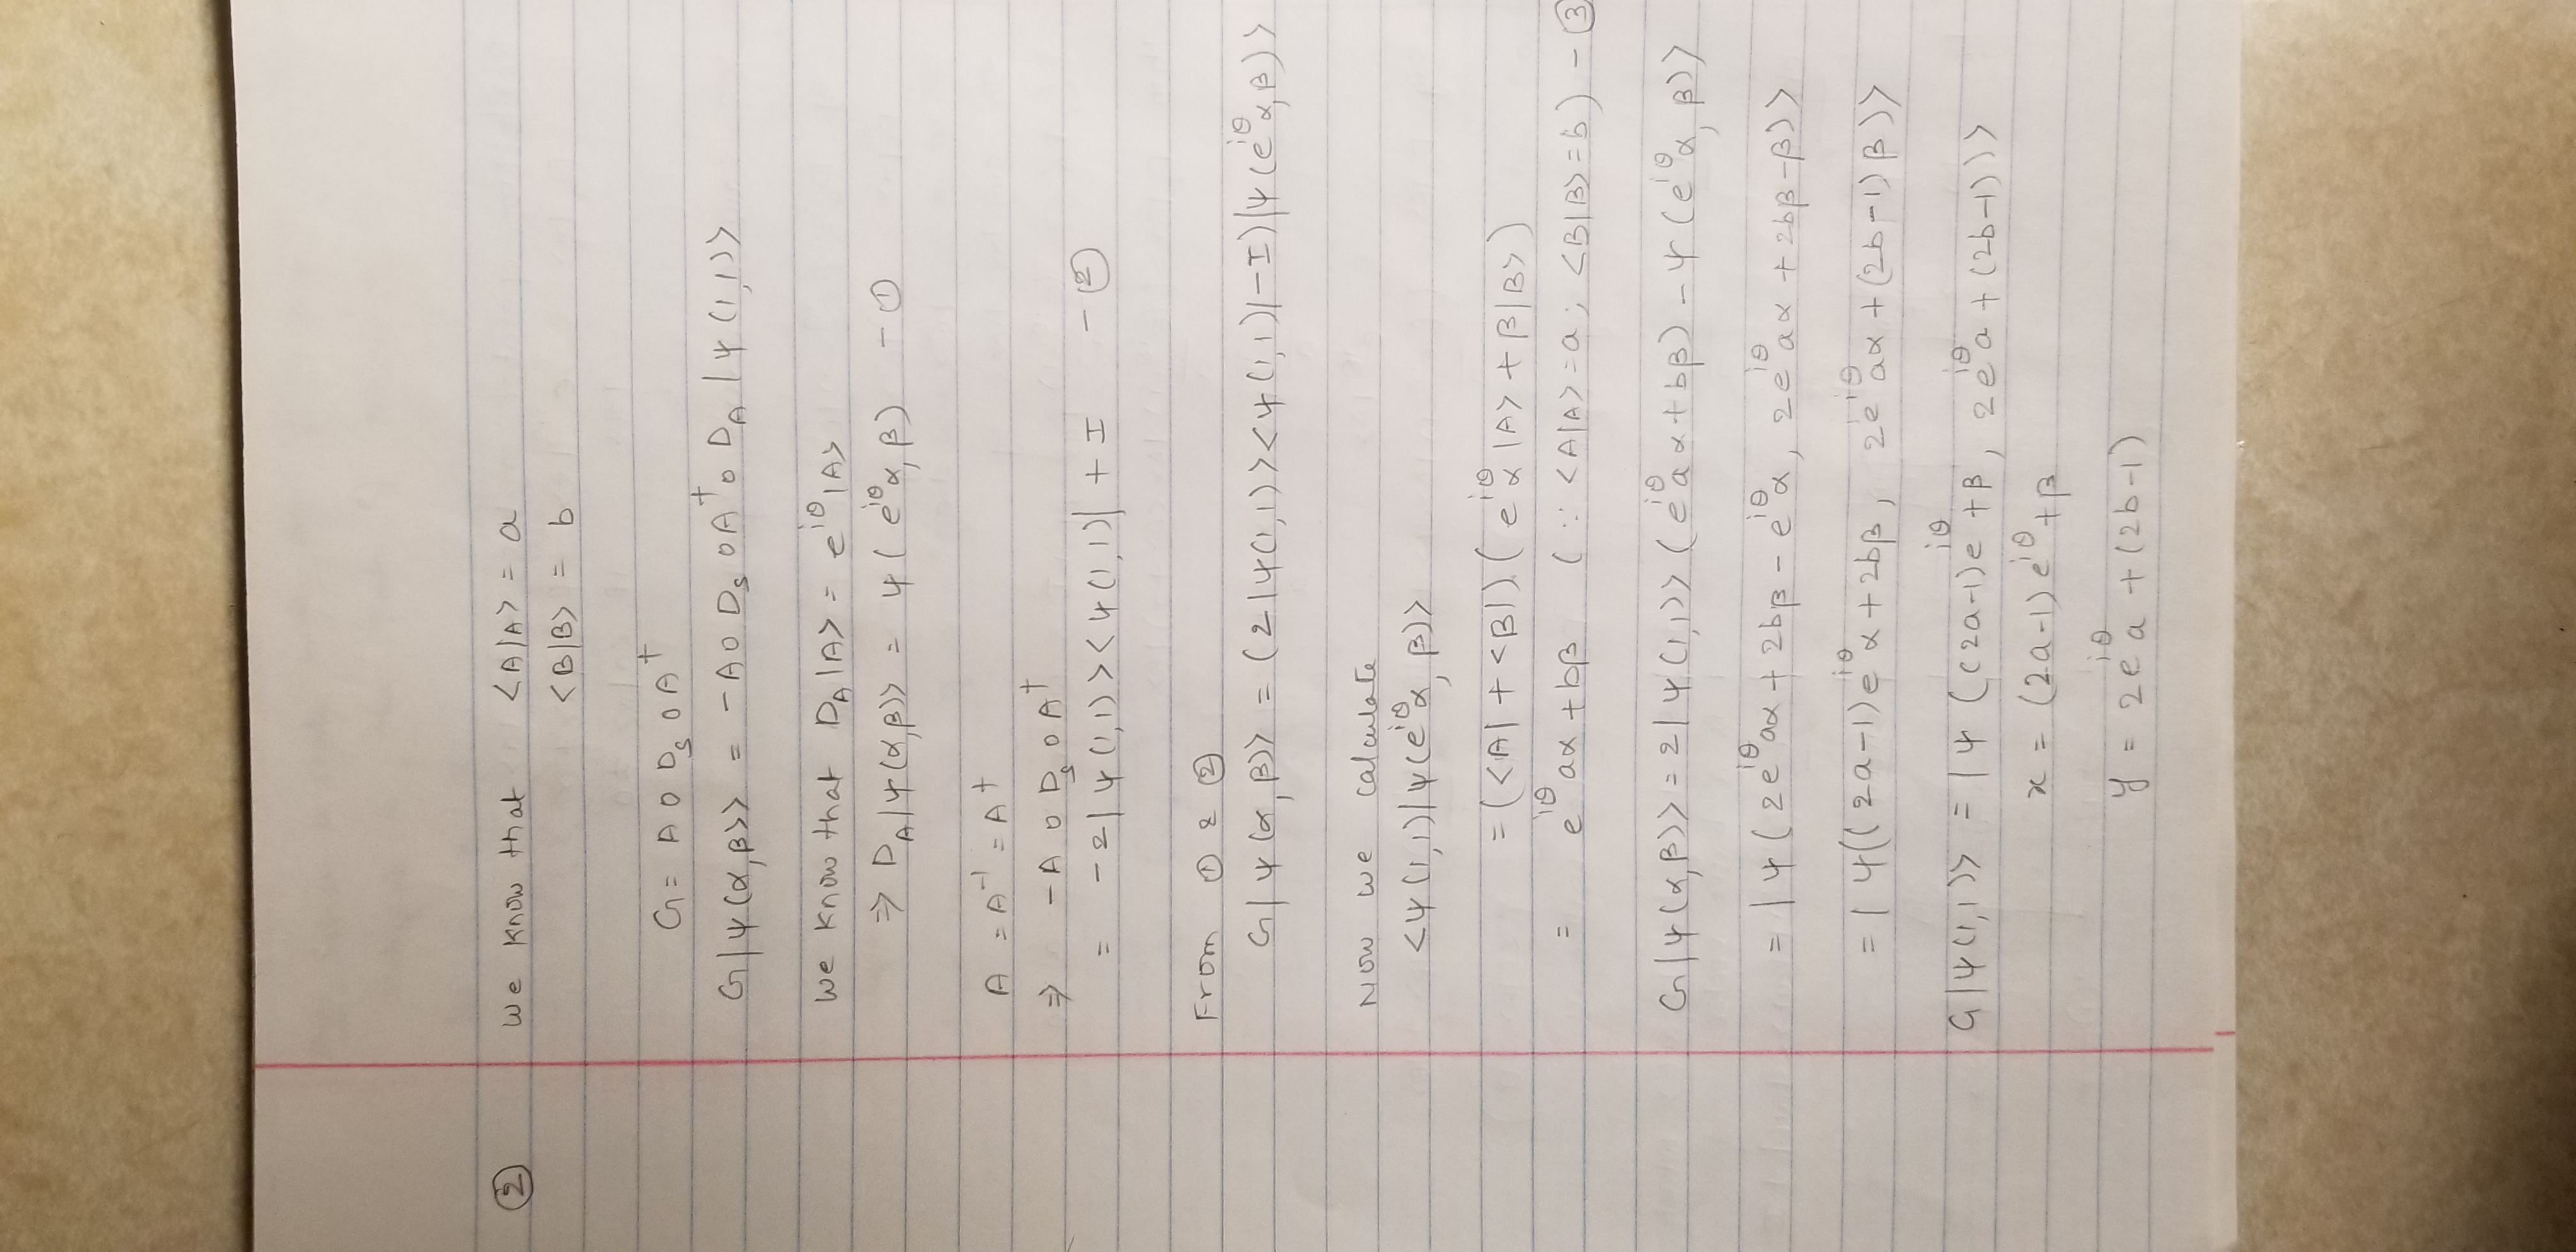 ② We know that <A|A> = a
<B|B> = b
G = A o D_s o A†
G|ψ(α,β)>> = -A o D_s o A† o D_A |ψ(1,1)>
We know that D_A|A> = e^{iθ}|A>
⇒ D_A|ψ(α,β)> = ψ(e^{iθ}α, β) - ①
A = A^{-1} = A†
⇒ -A o D_s o A†
= -2|ψ(1,1)><ψ(1,1)| + I - ②
From ① & ②
G|ψ(α,β)> = (2|ψ(1,1)><ψ(1,1)|-I)|ψ(e^{iθ}α,β)>
Now we calculate
<ψ(1,1)|ψ(e^{iθ}α, β)>
= (<A| + <B|).(e^{iθ}α|A> + β|B>)
= e^{iθ}aα + bβ (∵ <A|A> = a; <B|B> = b) - ③
G|ψ(α,β)> = 2|ψ(1,1)> (e^{iθ}aα + bβ) - ψ(e^{iθ}α, β)>
= |ψ(2e^{iθ}aα + 2bβ - e^{iθ}α, 2e^{iθ}aα + 2bβ-β)>
= |ψ((2a-1)e^{iθ}α + 2bβ, 2e^{iθ}aα + (2b-1)β)>
G|ψ(1,1)> = |ψ((2a-1)e^{iθ} + β, 2e^{iθ}a + (2b-1))>
x = (2a-1)e^{iθ} + β
y = 2e^{iθ}a + (2b-1)